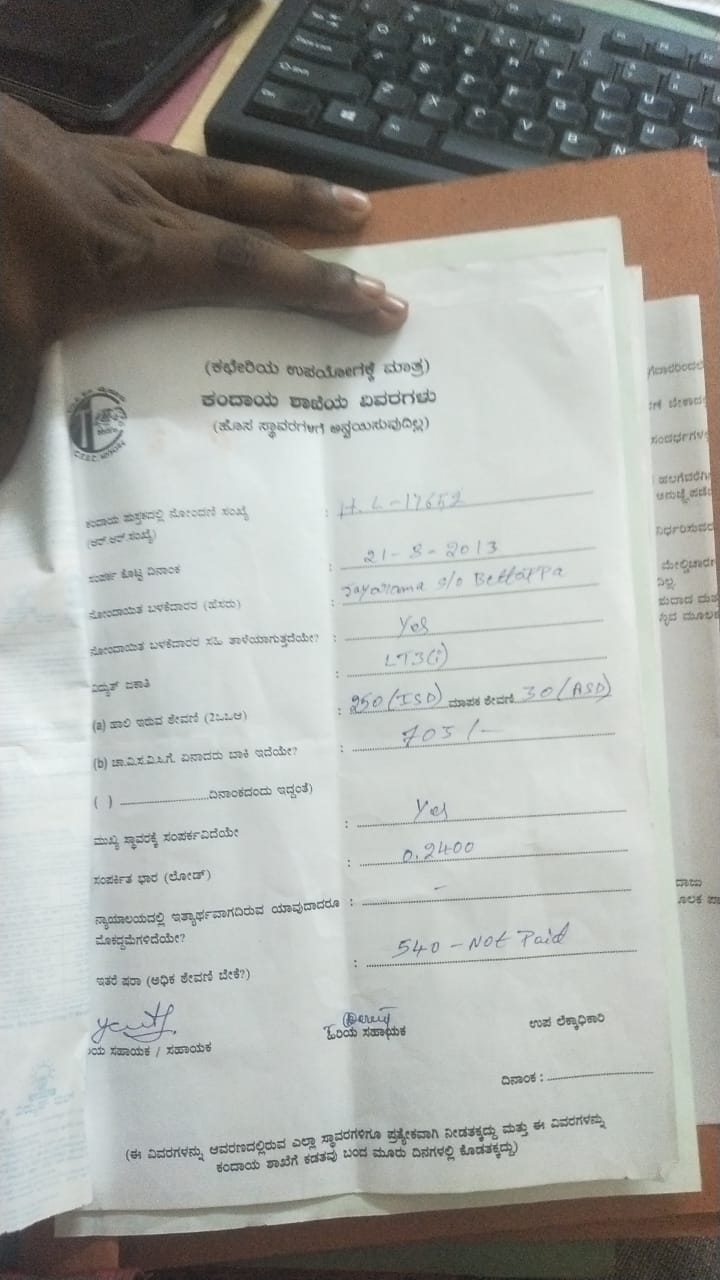 (ಕಛೇರಿಯ ಉಪಯೋಗಕ್ಕೆ ಮಾತ್ರ)
ಕಂದಾಯ ಶಾಖೆಯ ವಿವರಗಳು
(ಹೊಸ ಸ್ಥಾವರಗಳಿಗೆ ಅನ್ವಯಿಸುವುದಿಲ್ಲ)
ಕಂದಾಯ ಪುಸ್ತಕದಲ್ಲಿ ನೋಂದಣಿ ಸಂಖ್ಯೆ : H.L-17652
(ಆರ್.ಆರ್.ಸಂಖ್ಯೆ)
ಸಂಪರ್ಕ ಕೊಟ್ಟ ದಿನಾಂಕ : 21-8-2013
ನೋಂದಾಯಿತ ಬಳಕೆದಾರರ (ಹೆಸರು) : Jayarama s/o Bettappa
ನೋಂದಾಯಿತ ಬಳಕೆದಾರರ ಸಹಿ ತಾಳೆಯಾಗುತ್ತದೆಯೇ? : Yes
ವಿದ್ಯುತ್ ಜಕಾತಿ : LT3(i)
(a) ಹಾಲಿ ಇರುವ ಠೇವಣಿ (2ಒಒಆ) : 250 (ISD) ಮಾಪಕ ಠೇವಣಿ 30 (ASD)
(b) ಚಾ.ವಿ.ಸ.ವಿ.ಸಿ.ಗೆ. ಏನಾದರು ಬಾಕಿ ಇದೆಯೇ? : 705/-
( ) ........................ದಿನಾಂಕದಂದು ಇದ್ದಂತೆ)
ಮುಖ್ಯ ಸ್ಥಾವರಕ್ಕೆ ಸಂಪರ್ಕವಿದೆಯೇ : Yes
ಸಂಪರ್ಕಿತ ಭಾರ (ಲೋಡ್) : 0.2400
ನ್ಯಾಯಾಲಯದಲ್ಲಿ ಇತ್ಯಾರ್ಥವಾಗದಿರುವ ಯಾವುದಾದರೂ : -
ಮೊಕದ್ದಮೆಗಳಿದೆಯೇ?
ಇತರೆ ಷರಾ (ಅಧಿಕ ಠೇವಣಿ ಬೇಕೆ?) : 540 - Not Paid
ಸಹಾಯಕ / ಸಹಾಯಕ
ಹಿರಿಯ ಸಹಾಯಕ
ಉಪ ಲೆಕ್ಕಾಧಿಕಾರಿ
ದಿನಾಂಕ : ........................
(ಈ ವಿವರಗಳನ್ನು ಆವರಣದಲ್ಲಿರುವ ಎಲ್ಲಾ ಸ್ಥಾವರಗಳಿಗೂ ಪ್ರತ್ಯೇಕವಾಗಿ ನೀಡತಕ್ಕದ್ದು ಮತ್ತು ಈ ವಿವರಗಳನ್ನು
ಕಂದಾಯ ಶಾಖೆಗೆ ಕಡತವು ಬಂದ ಮೂರು ದಿನಗಳಲ್ಲಿ ಕೊಡತಕ್ಕದ್ದು)